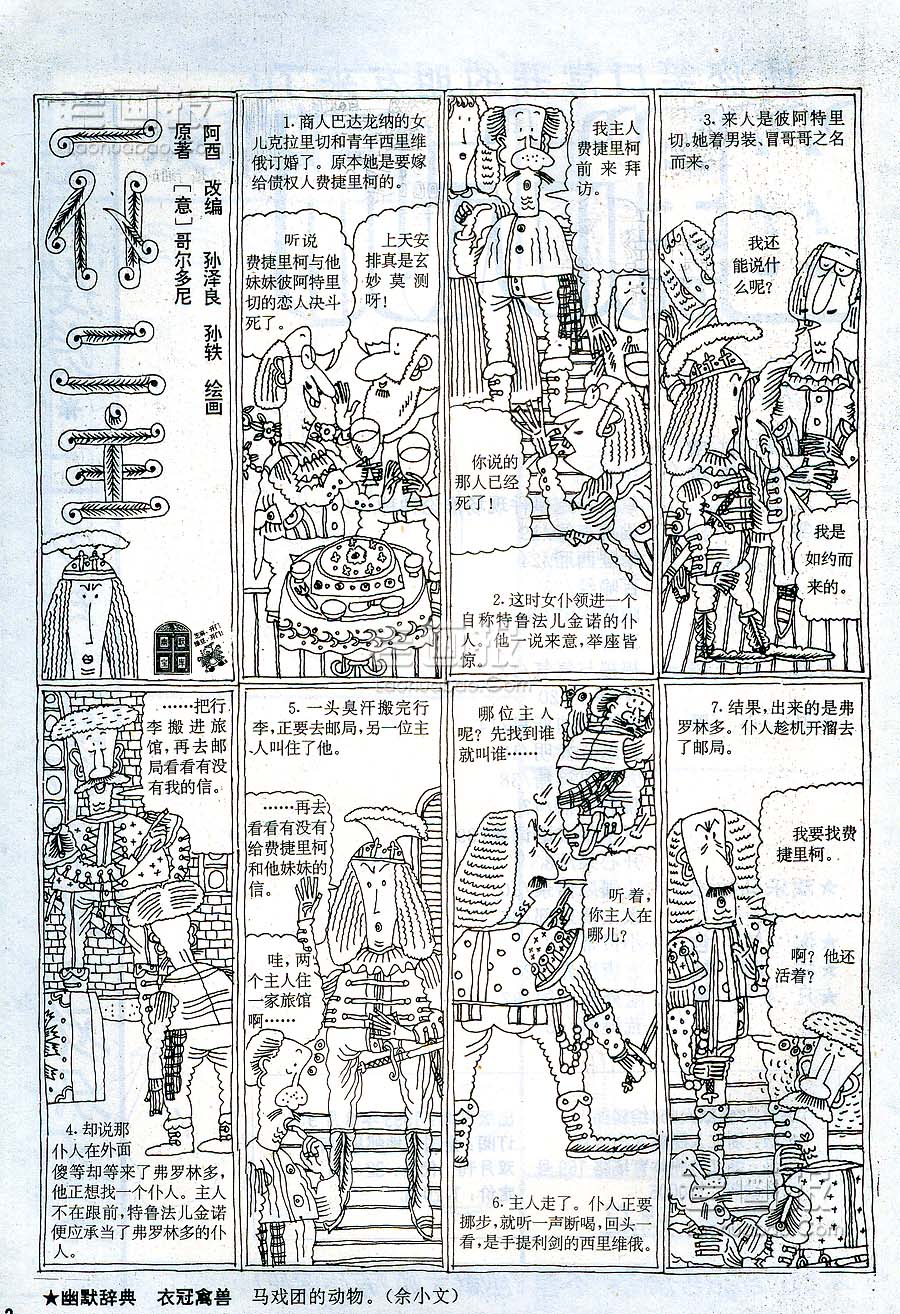 一仆二主
原著 ［意］哥尔多尼
阿酉 改编 孙泽良 孙轶 绘画
1. 商人巴达龙纳的女
儿克拉里切和青年西里维
俄订婚了。原本她是要嫁
给债权人费捷里柯的。
听说
费捷里柯与他
妹妹彼阿特里
切的恋人决斗
死了。
上天安
排真是玄
妙莫测
呀！
我主人
费捷里柯
前来拜
访。
你说的
那人已经
死了！
2. 这时女仆领进一个
自称特鲁法儿金诺的仆
人。他一说来意，举座皆
惊。
3. 来人是彼阿特里
切。她着男装、冒哥哥之名
而来。
我还
能说什
么呢？
我是
如约而
来的。
……把行
李搬进旅
馆，再去邮
局看看有没
有我的信。
4. 却说那
仆人在外面
傻等却等来了弗罗林多，
他正想找一个仆人。主人
不在跟前，特鲁法儿金诺
便应承当了弗罗林多的仆
人。
5. 一头臭汗搬完行
李，正要去邮局，另一位主
人叫住了他。
……再去
看看有没有
给费捷里柯
和他妹妹的
信。
哇，两
个主人住
一家旅馆
啊……
哪位主人
呢？先找到谁
就叫谁……
听着，
你主人在
哪儿？
6. 主人走了。仆人正要
挪步，就听一声断喝，回头一
看，是手提利剑的西里维俄。
7. 结果，出来的是弗
罗林多。仆人趁机开溜去
了邮局。
我要找费
捷里柯。
啊？他还
活着？
★幽默辞典 衣冠禽兽 马戏团的动物。（佘小文）